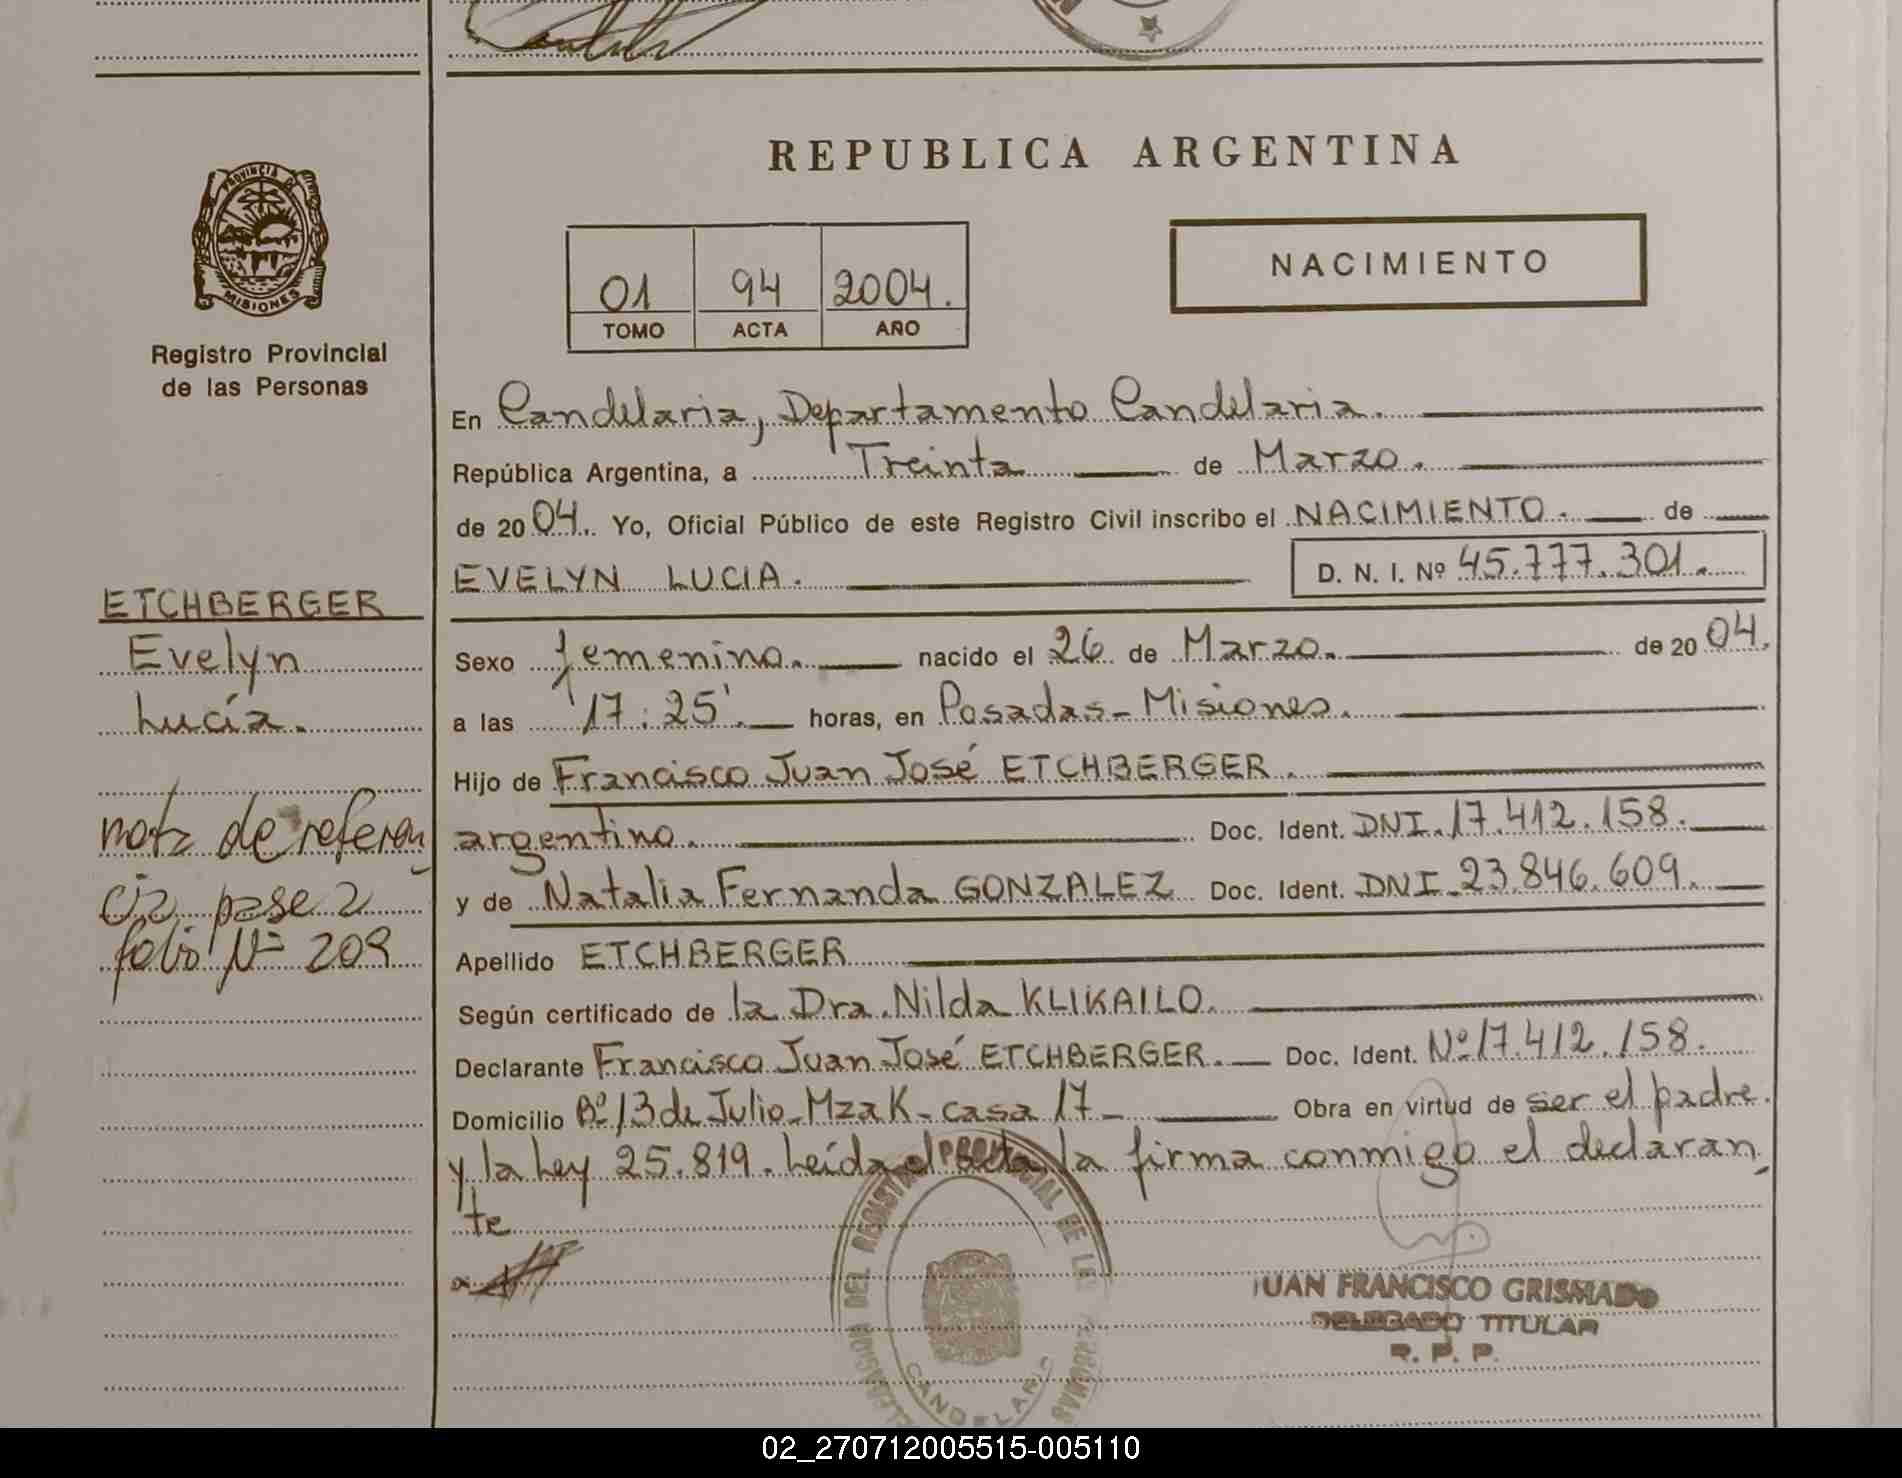 REPUBLICA ARGENTINA
PROVINCIA DE
MISIONES
Registro Provincial
de las Personas
01 94 2004.
TOMO ACTA AÑO
NACIMIENTO
En Candelaria, Departamento Candelaria.
República Argentina, a Treinta de Marzo.
de 2004. Yo, Oficial Público de este Registro Civil inscribo el NACIMIENTO. de
EVELYN LUCIA.
D. N. I. Nº 45.777.301.
ETCHBERGER
Evelyn
Lucía.
nota de referen
cia pase a
folio Nº 209
Sexo femenino. nacido el 26 de Marzo. de 2004.
a las 17:25'. horas, en Posadas-Misiones.
Hijo de Francisco Juan José ETCHBERGER.
argentino. Doc. Ident. DNI. 17.412.158.
y de Natalia Fernanda GONZALEZ Doc. Ident. DNI. 23.846.609.
Apellido ETCHBERGER
Según certificado de la Dra. Nilda KLIKAILO.
Declarante Francisco Juan José ETCHBERGER. Doc. Ident. Nº 17.412.158.
Domicilio Bº 13 de Julio-Mza K-casa 17- Obra en virtud de ser el padre.
y la Ley 25.819. Leída el acta la firma conmigo el declaran
te
DEL REGISTRO PROVINCIAL DE LAS PERSONAS
CANDELARIA
JUAN FRANCISCO GRISMADO
DELEGADO TITULAR
R. P. P.
02_270712005515-005110